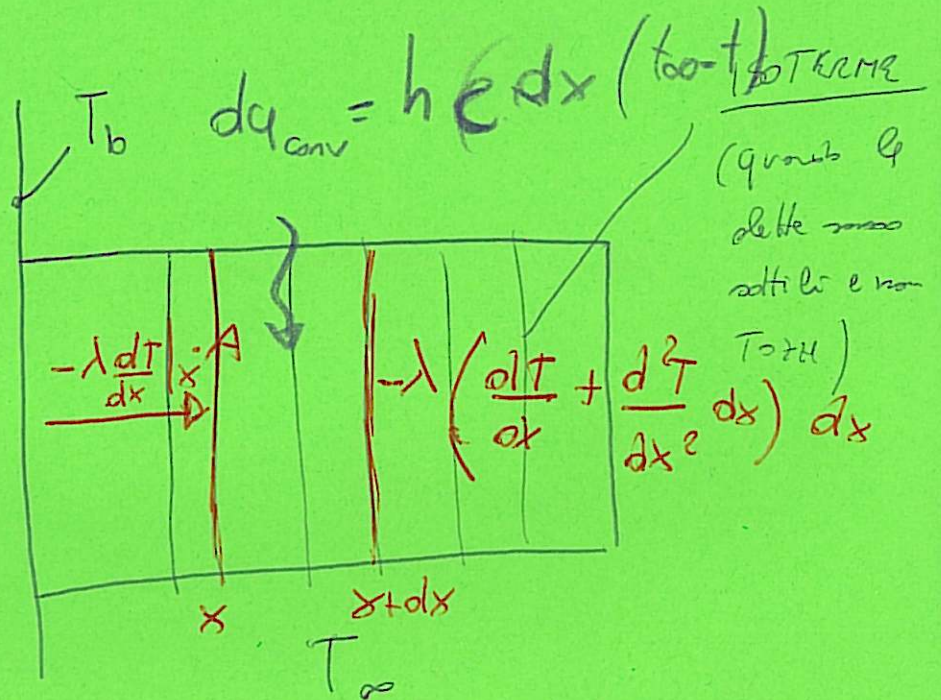 dq_conv = h C dx (t∞-t)
T_b
ISOTERME
(quando le
alette sono
sottili e non
)
-λ dT/dx |x · A
-λ (dT/dx + d²T/dx² dx) dx
x
x+dx
T∞